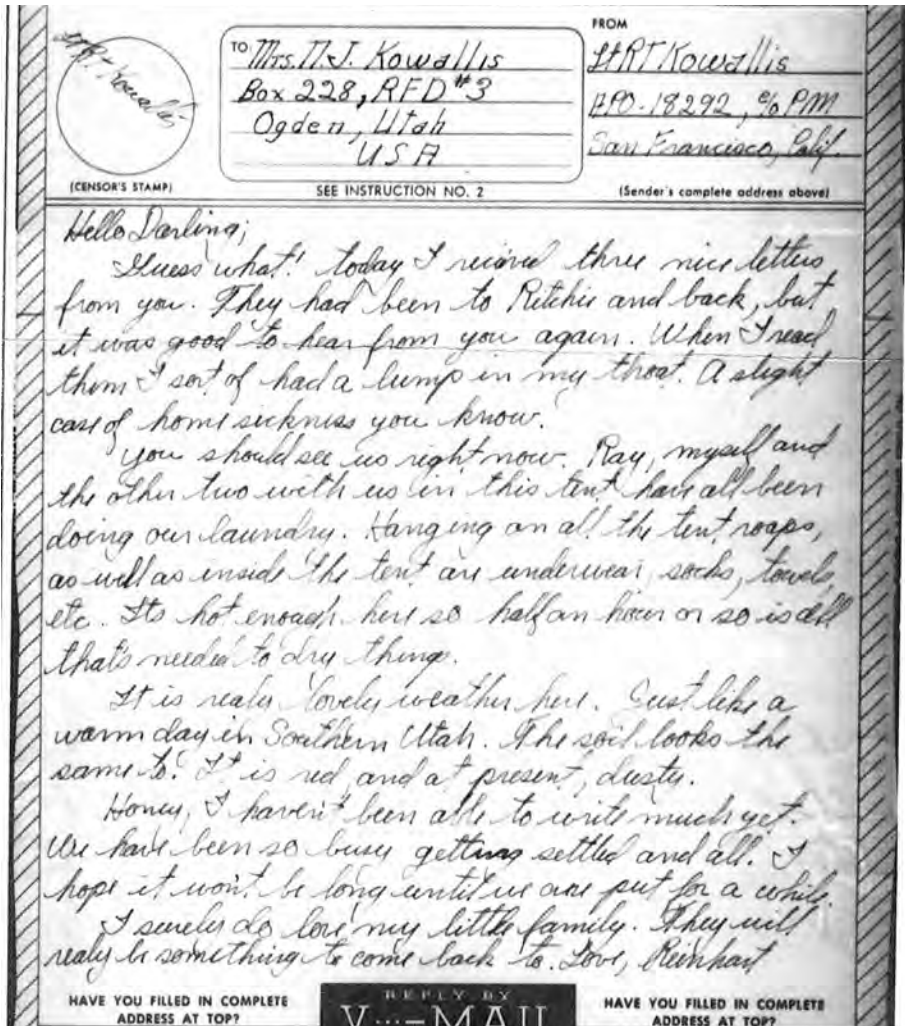 FROM
Lt RT Kowallis
TO: Mrs. N.J. Kowallis
Box 228, RFD #3
Ogden, Utah
USA
Lt RT Kowallis
APO-18292, c/o PM
San Francisco, Calif.
(CENSOR'S STAMP)
SEE INSTRUCTION NO. 2
(Sender's complete address above)
Hello Darling;
Guess what! today I recieved three nice letters
from you. They had been to Ritchie and back, but
it was good to hear from you again. When I read
them I sort of had a lump in my throat. A slight
case of home sickness you know.
You should see us right now. Ray, myself and
the other two with us in this tent have all been
doing our laundry. Hanging on all the tent roaps,
as well as inside the tent are underwear, socks, towels,
etc. Its hot enough here so half an hour or so is all
that's needed to dry things.
It is realy lovely weather here. Just like a
warm day in Southern Utah. The soil looks the
same to! It is red, and at present, dusty.
Honey, I haven't been able to write much yet.
We have been so busy getting settled and all. I
hope it won't be long until we are put for a while.
I surely do love my little family. They will
realy be something to come back to. Love, Reinhart
HAVE YOU FILLED IN COMPLETE
ADDRESS AT TOP?
REPLY BY
V···—MAIL
HAVE YOU FILLED IN COMPLETE
ADDRESS AT TOP?